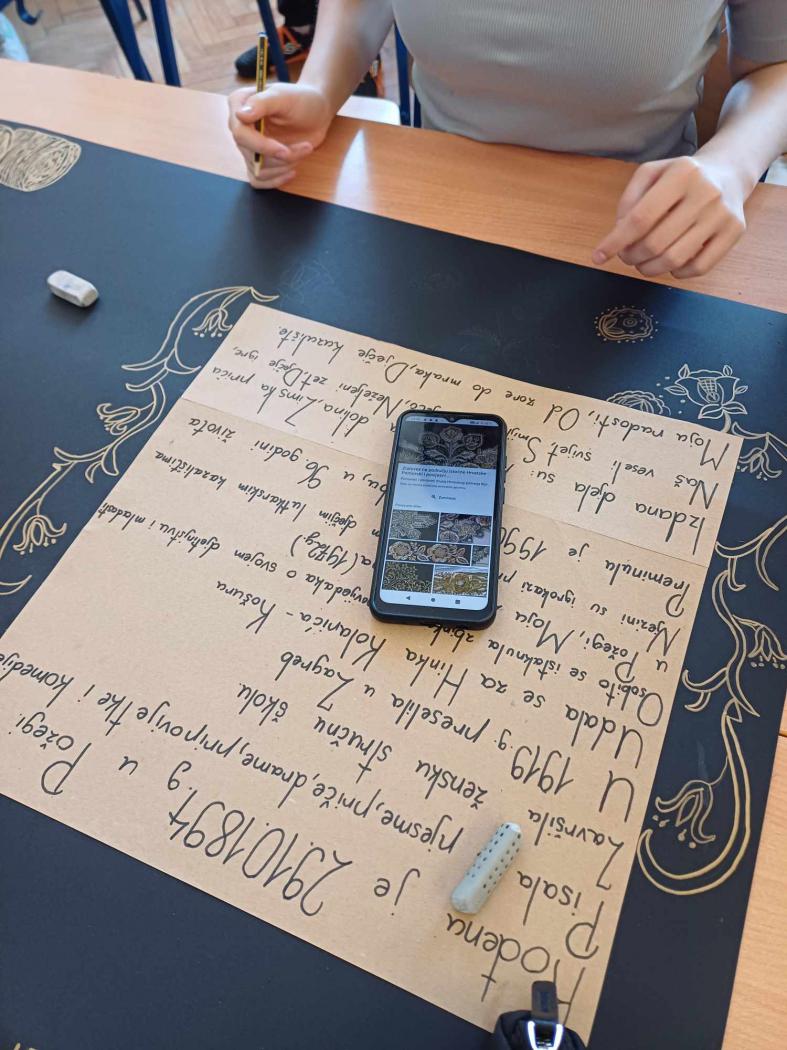 Rođena je 29.10.1894.g u Požegi.
Pisala pjesme, priče, drame, pripovijetke i komedije
Završila žensku stručnu školu.
U 1919.g preselila u Zagreb
Udala se za Hinka Kolarića - Košura
Osobito se istaknula pripovjedaka o svojem djetinjstvu i mladosti
u Požegi, Moja
Njezini su igrokazi dječjim lutkarskim kazalištima
Preminula je u 96. godini života
Izdana djela su: dolina, Zimska priča
Naš veseli svijet, Neželjeni zet, Dječje igre,
Moja radosti, Od zore do mraka, Dječje kazalište.